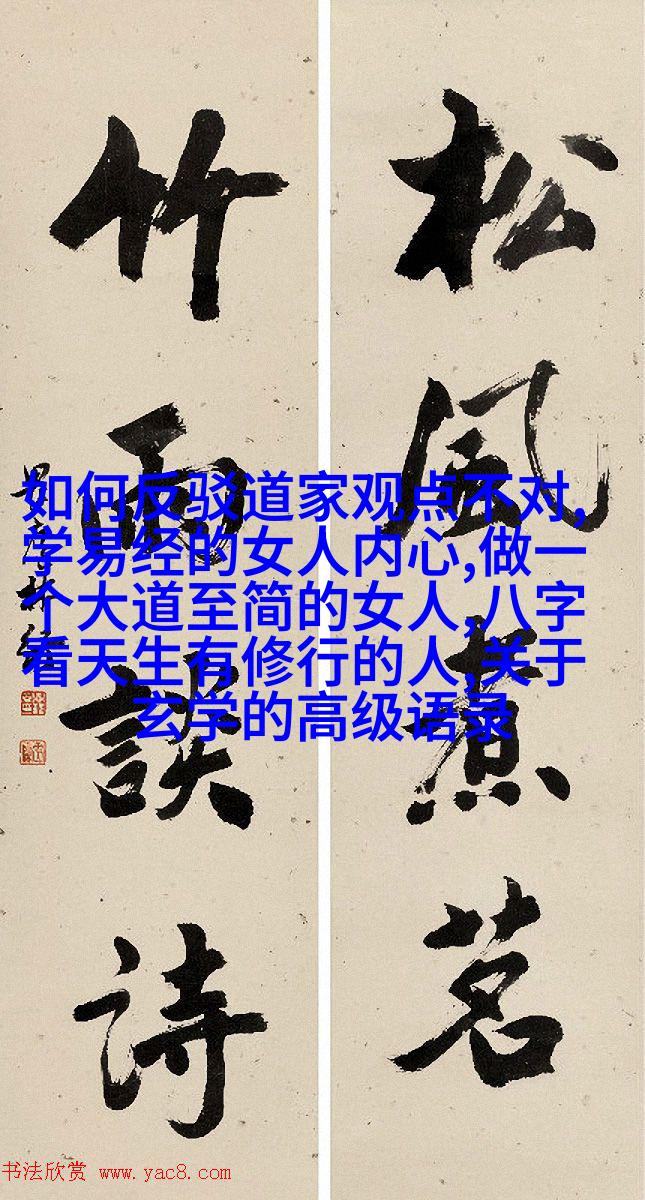 松風煮茗
竹雨談詩
如何反驳道家观点不对,
学易经的女人内心,做一
个大道至简的女人,八字
看天生有修行的人,关于
玄学的高级语录
书法欣赏 www.yac8.com